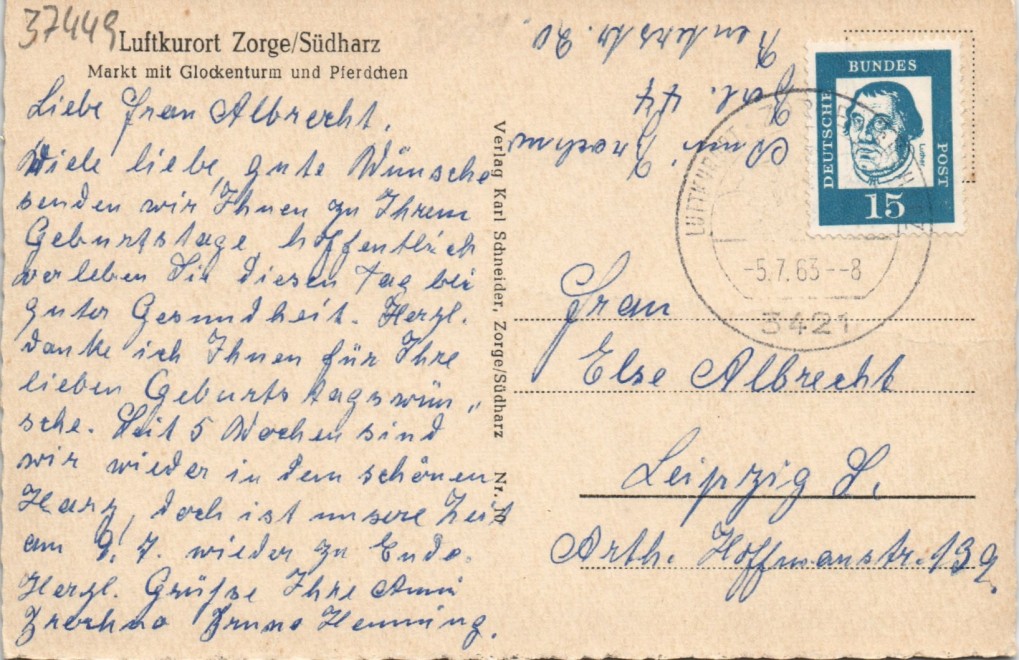 37449
Luftkurort Zorge/Südharz
Markt mit Glockenturm und Pferdchen
Liebe Frau Albrecht.
Viele liebe, gute Wünsche
senden wir Ihnen zu Ihrem
Geburtstage, hoffentlich
verleben Sie diesen Tag bei
guter Gesundheit. Herzl.
danke ich Ihnen für Ihre
lieben Geburtstagswün„
sche. Seit 5 Wochen sind
wir wieder in dem schönen
Harz, doch ist unsere Zeit
am 9. 7. wieder zu Ende.
Herzl. Grüße Ihre Anni
Henning.
Verlag Karl Schneider, Zorge/Südharz Nr. 10
Anni
DEUTSCHE
BUNDES
POST
Luther
15
LUFTKURORT
-5.7.63--8
3421
Frau
Else Albrecht
Leipzig S.
Arth. Hoffmanstr. 139.